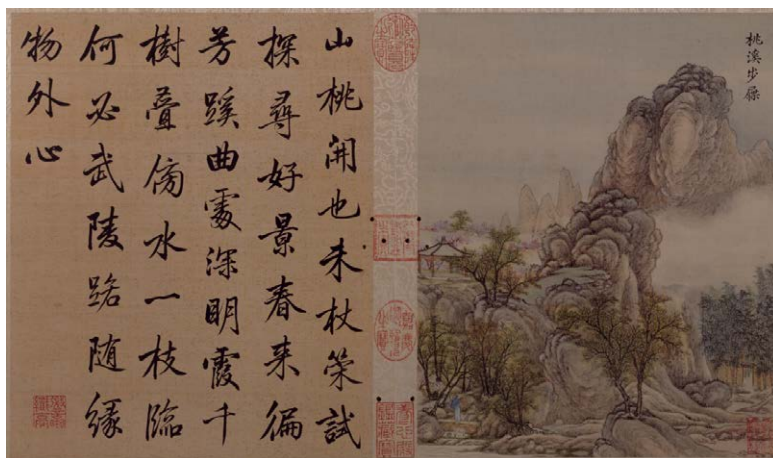 桃溪步屧
山桃開也未杖策試
探尋好景春來徧
芳蹊曲處深明霞千
樹疊傍水一枝臨
何必武陵路隨緣
物外心